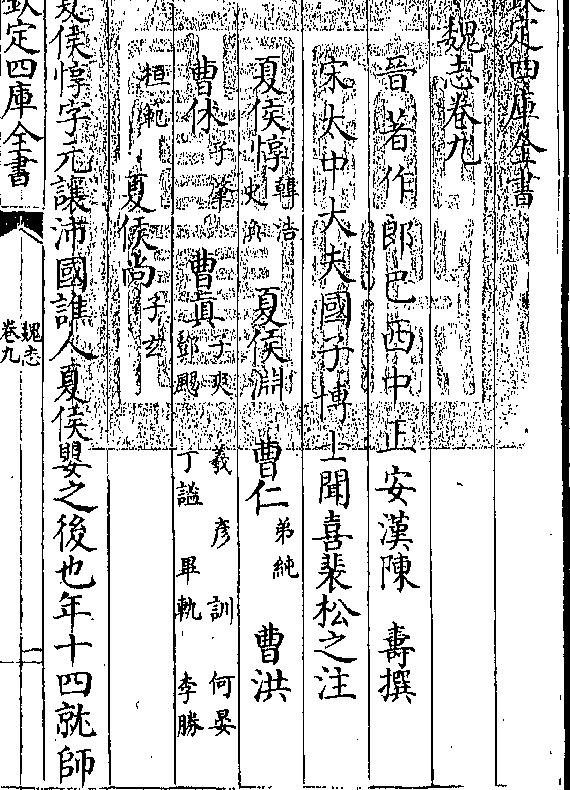 欽定四庫全書
魏志卷九
晉著作郎巴西中正安漢陳壽撰
宋太中大夫國子博士聞喜裴松之注
夏侯惇 韓浩 史渙 夏侯淵 曹仁 弟純 曹洪
曹休 子肇 曹真 子爽 羲 彥 訓 何晏 鄧颺 丁謐 畢軌 李勝
桓範 夏侯尚 子玄
夏侯惇字元讓沛國譙人夏侯嬰之後也年十四就師
欽定四庫全書
魏志
卷九
一